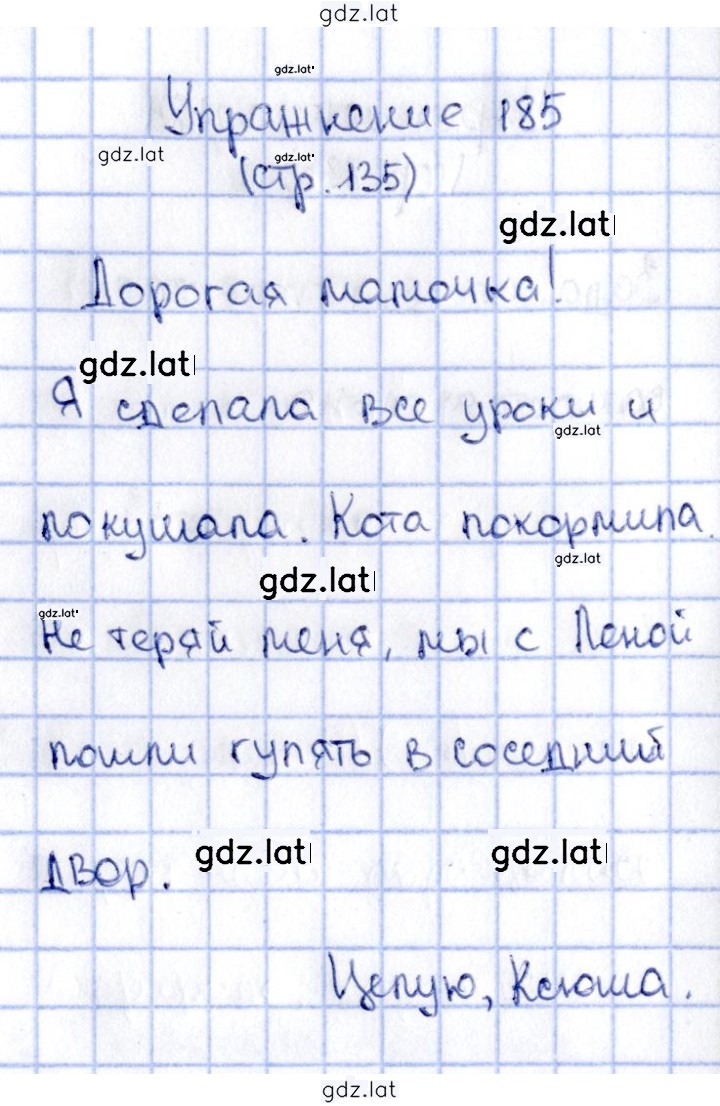 gdz.lat
gdz.lat
Упражнение 185
gdz.lat
gdz.lat
(стр. 135)
gdz.lat
Дорогая мамочка!
gdz.lat
Я сделала все уроки и
gdz.lat
покушала. Кота покормила.
gdz.lat
gdz.lat
gdz.lat
Не теряй меня, мы с Леной
пошли гулять в соседний
двор.
gdz.lat
gdz.lat
Целую, Ксюша.
gdz.lat